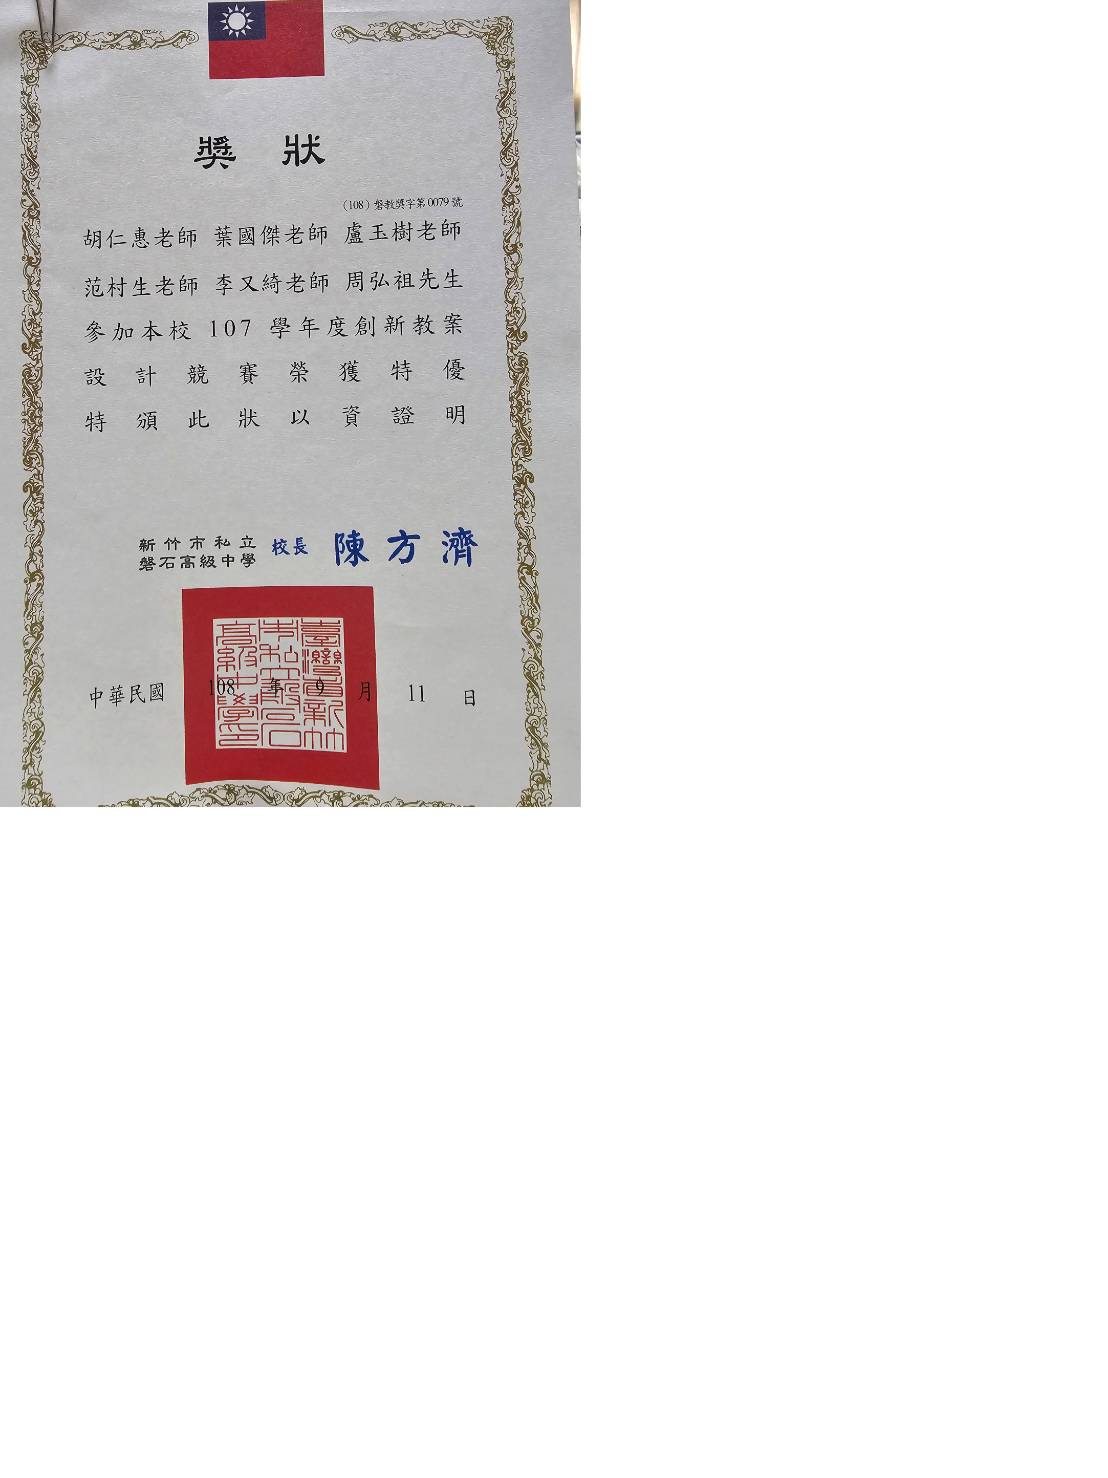 獎狀
（108）磐教獎字第0079號
胡仁惠老師 葉國傑老師 盧玉樹老師
范村生老師 李又綺老師 周弘祖先生
參加本校 107 學年度創新教案
設計競賽榮獲特優
特頒此狀以資證明
新竹市私立
磐石高級中學 校長 陳方濟
臺灣省新竹市私立磐石高級中學印
中華民國 108 年 9 月 11 日